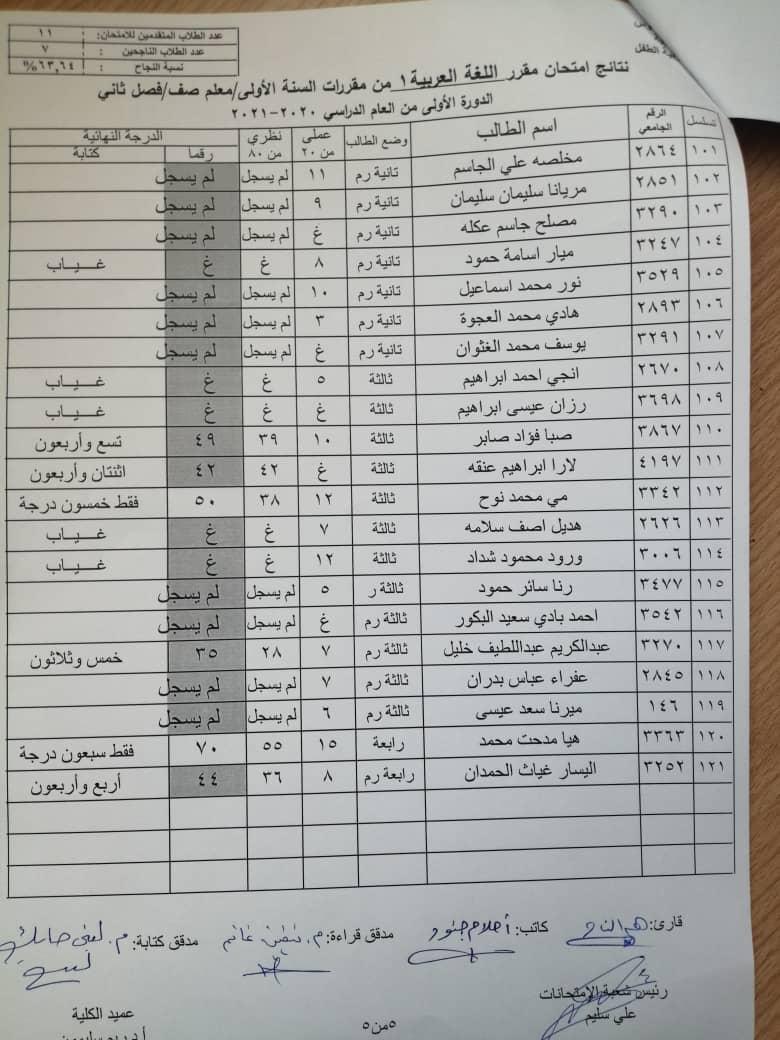 عدد الطلاب المتقدمين للامتحان: ١١
عدد الطلاب الناجحين : ٧
نسبة النجاح : ٦٣,٦٤%
ة الطفل
نتائج امتحان مقرر اللغة العربية ١ من مقررات السنة الأولى/معلم صف/فصل ثاني
الدورة الأولى من العام الدراسي ٢٠٢٠-٢٠٢١
تسلسل الرقم الجامعي اسم الطالب وضع الطالب عملي من ٢٠ نظري من ٨٠ الدرجة النهائية رقما كتابة
١٠١ ٢٨٦٤ مخلصه علي الجاسم ثانية رم ١١ لم يسجل لم يسجل
١٠٢ ٢٨٥١ مريانا سليمان سليمان ثانية رم ٩ لم يسجل لم يسجل
١٠٣ ٣٢٩٠ مصلح جاسم عكله ثانية رم غ لم يسجل لم يسجل
١٠٤ ٣٢٤٧ ميار اسامة حمود ثانية رم ٨ غ غ غـــيـــاب
١٠٥ ٣٥٢٩ نور محمد اسماعيل ثانية رم ١٠ لم يسجل لم يسجل
١٠٦ ٢٨٩٣ هادي محمد العجوة ثانية رم ٣ لم يسجل لم يسجل
١٠٧ ٣٢٩١ يوسف محمد الغثوان ثانية رم غ لم يسجل لم يسجل
١٠٨ ٢٦٧٠ انجي احمد ابراهيم ثالثة ٥ غ غ غـــيـــاب
١٠٩ ٣٦٩٨ رزان عيسى ابراهيم ثالثة غ غ غ غـــيـــاب
١١٠ ٣٨٦٧ صبا فؤاد صابر ثالثة ١٠ ٣٩ ٤٩ تسع وأربعون
١١١ ٤١٩٧ لارا ابراهيم عنقه ثالثة غ ٤٢ ٤٢ اثنتان وأربعون
١١٢ ٣٣٤٢ مي محمد نوح ثالثة ١٢ ٣٨ ٥٠ فقط خمسون درجة
١١٣ ٢٦٢٦ هديل اصف سلامه ثالثة ٧ غ غ غـــيـــاب
١١٤ ٣٠٠٦ ورود محمود شداد ثالثة ١٢ غ غ غـــيـــاب
١١٥ ٣٤٧٧ رنا سائر حمود ثالثة ر ٥ لم يسجل لم يسجل
١١٦ ٣٥٤٢ احمد بادي سعيد البكور ثالثة رم غ لم يسجل لم يسجل
١١٧ ٣٢٧٠ عبدالكريم عبداللطيف خليل ثالثة رم ٧ ٢٨ ٣٥ خمس وثلاثون
١١٨ ٢٨٤٥ عفراء عباس بدران ثالثة رم ٧ لم يسجل لم يسجل
١١٩ ١٤٦ ميرنا سعد عيسى ثالثة رم ٦ لم يسجل لم يسجل
١٢٠ ٣٣٦٣ هيا مدحت محمد رابعة ١٥ ٥٥ ٧٠ فقط سبعون درجة
١٢١ ٣٢٥٢ اليسار غياث الحمدان رابعة رم ٨ ٣٦ ٤٤ أربع وأربعون
قارئ: كاتب: أحلام جنود مدقق قراءة: م. غانم مدقق كتابة: م. لبنى
رئيس شعبة الامتحانات
علي سليم
عميد الكلية
٥من٥